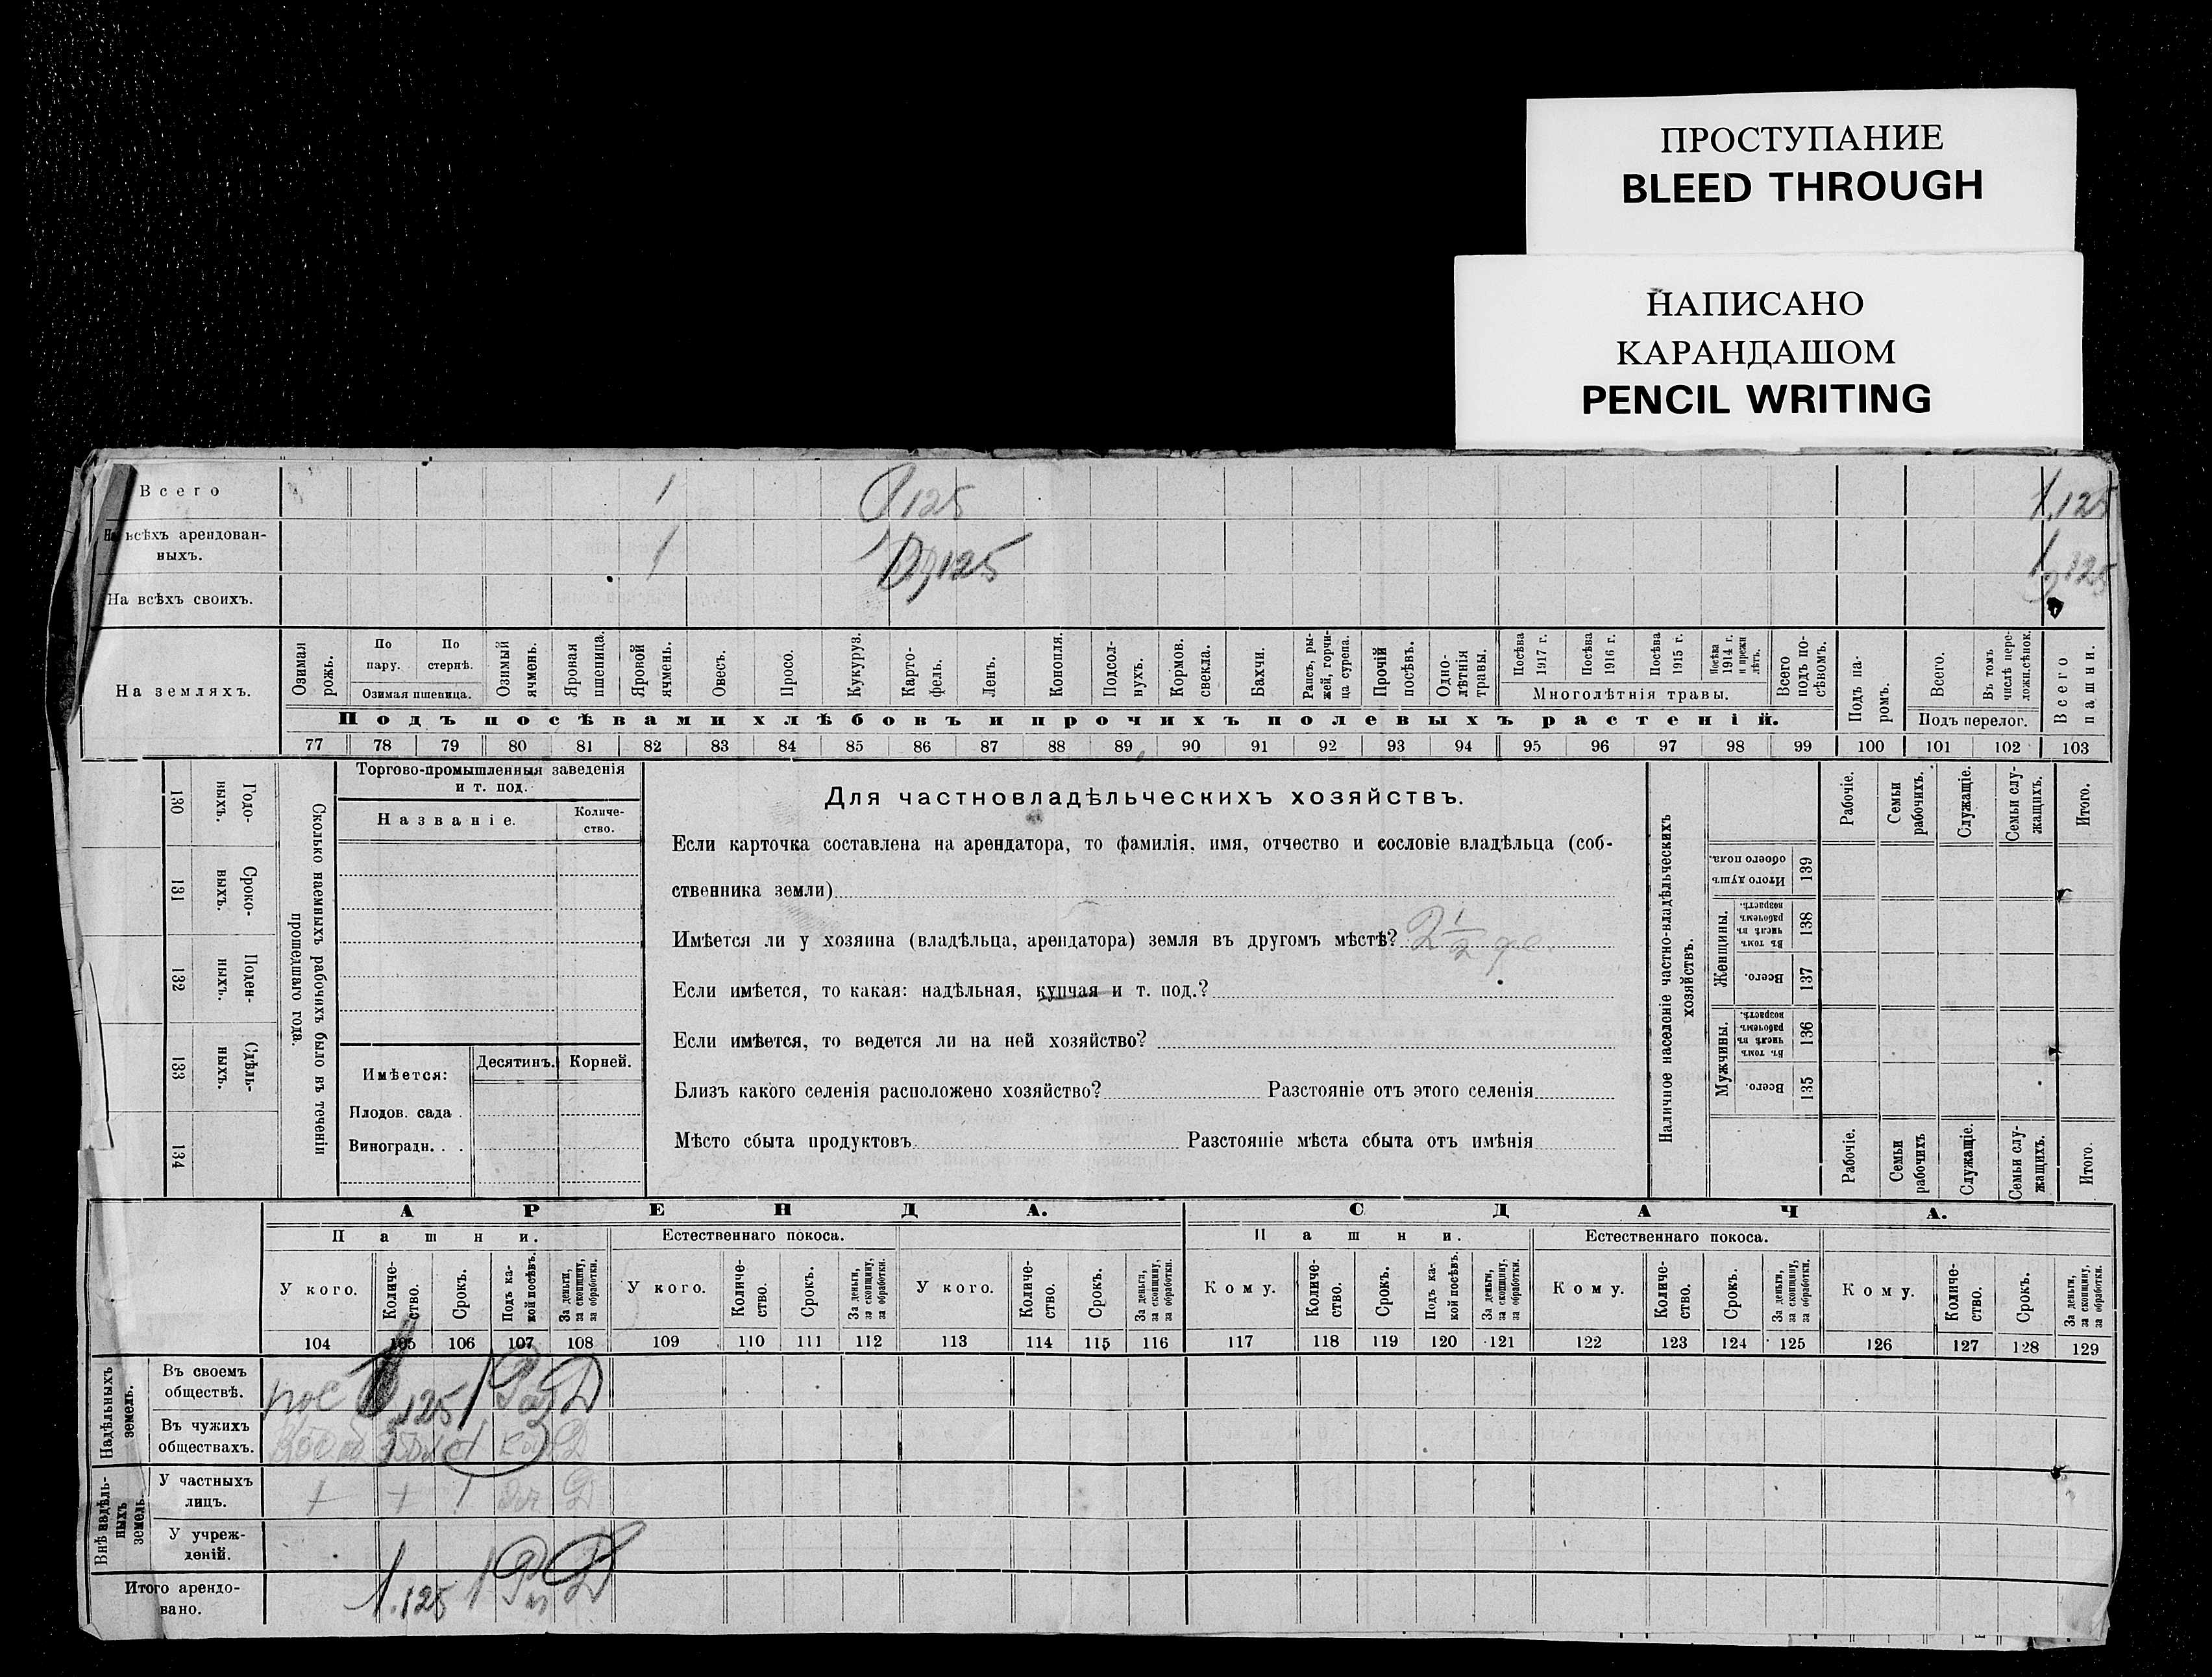 ПРОСТУПАНИЕ
BLEED THROUGH
НАПИСАНО
КАРАНДАШОМ
PENCIL WRITING
Всего 1 125 1,125
На всѣхъ арендован-
ныхъ. 1 125 1,125
На всѣхъ своихъ.
На земляхъ.
Озимая рожь.
По пару.
По стернѣ.
Озимая пшеница.
Озимый ячмень.
Яровая пшеница.
Яровой ячмень.
Овесъ.
Просо.
Кукуруз.
Карто-
фель.
Ленъ.
Конопля.
Подсол-
нухъ.
Кормов.
свекла.
Бахчи.
Рапсъ, ры-
жей, горчи-
ца сурепа.
Прочій
посѣвъ.
Одно-
лѣтнія
травы.
Посѣва
1917 г.
Посѣва
1916 г.
Посѣва
1915 г.
Посѣва
1914 г.
и прежн
лѣтъ.
Многолѣтнія травы.
Всего
подъ по-
сѣвомъ.
Подъ па-
ромъ.
Всего.
Въ томъ
числѣ пере-
ложн.сѣнок.
Подъ перелог.
Всего
пашни.
Подъ посѣвами хлѣбовъ и прочихъ полевыхъ растеній.
77 78 79 80 81 82 83 84 85 86 87 88 89 90 91 92 93 94 95 96 97 98 99 100 101 102 103
Годо-
ныхъ.
130
Сроко-
выхъ.
131
Поден-
ныхъ.
132
Сдѣль-
ныхъ.
133
134
Сколько наемныхъ рабочихъ было въ теченіи
прошедшаго года.
Торгово-промышленныя заведенія
и т. под.
Названіе.
Количе-
ство.
Имѣется:
Десятинъ. Корней.
Плодов. сада .
Виноградн. . .
Для частновладѣльческихъ хозяйствъ.
Если карточка составлена на арендатора, то фамилія, имя, отчество и сословіе владѣльца (соб-
ственника земли)
Имѣется ли у хозяина (владѣльца, арендатора) земля въ другомъ мѣстѣ? 2 1/2
Если имѣется, то какая: надѣльная, купчая и т. под.?
Если имѣется, то ведется ли на ней хозяйство?
Близъ какого селенія расположено хозяйство? Разстояніе отъ этого селенія
Мѣсто сбыта продуктовъ Разстояніе мѣста сбыта отъ имѣнія
Наличное населеніе частно-владѣльческихъ
хозяйствъ.
Итого душъ
обоего пола.
139
Женщины.
Въ томъ
числѣ въ
рабочемъ
возрастѣ.
138
Всего.
137
Мужчины.
Въ томъ
числѣ въ
рабочемъ
возрастѣ.
136
Всего.
135
Рабочіе.
Семьи
рабочихъ.
Служащіе.
Семьи слу-
жащихъ.
Итого.
Рабочіе.
Семьи
рабочихъ
Служащіе.
Семьи слу-
жащихъ.
Итого.
АРЕНДА. СДАЧА.
Пашни. Естественнаго покоса. Пашни. Естественнаго покоса.
У кого.
Количе-
ство.
Срокъ.
Подъ ка-
кой посѣвъ.
За деньги,
за скопщину,
за обработки.
У кого.
Количе-
ство.
Срокъ.
За деньги,
за скопщину,
за обработки.
У кого.
Количе-
ство.
Срокъ.
За деньги,
за скопщину,
за обработки.
Кому.
Количе-
ство.
Срокъ.
Подъ ка-
кой посѣвъ.
За деньги,
за скопщину,
за обработки.
Кому.
Количе-
ство.
Срокъ.
За деньги,
за скопщину,
за обработки.
Кому.
Количе-
ство.
Срокъ.
За деньги,
за скопщину,
за обработки.
104 105 106 107 108 109 110 111 112 113 114 115 116 117 118 119 120 121 122 123 124 125 126 127 128 129
Надѣльныхъ
земель.
Въ своемъ
обществѣ. 125 1 Д
Въ чужихъ
обществахъ.
Внѣ надѣль-
ныхъ
земель.
У частныхъ
лицъ.
У учреж-
деній.
Итого арендо-
вано. 1.125 1 Д